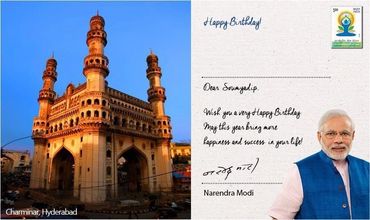 Happy Birthday!
Dear Soumyadip.
Wish you a very Happy Birthday
May this year bring more
happiness and success in your life!
Narendra Modi
Charminar, Hyderabad